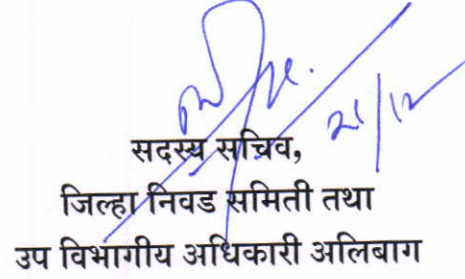 21/12
सदस्य सचिव,
जिल्हा निवड समिती तथा
उप विभागीय अधिकारी अलिबाग